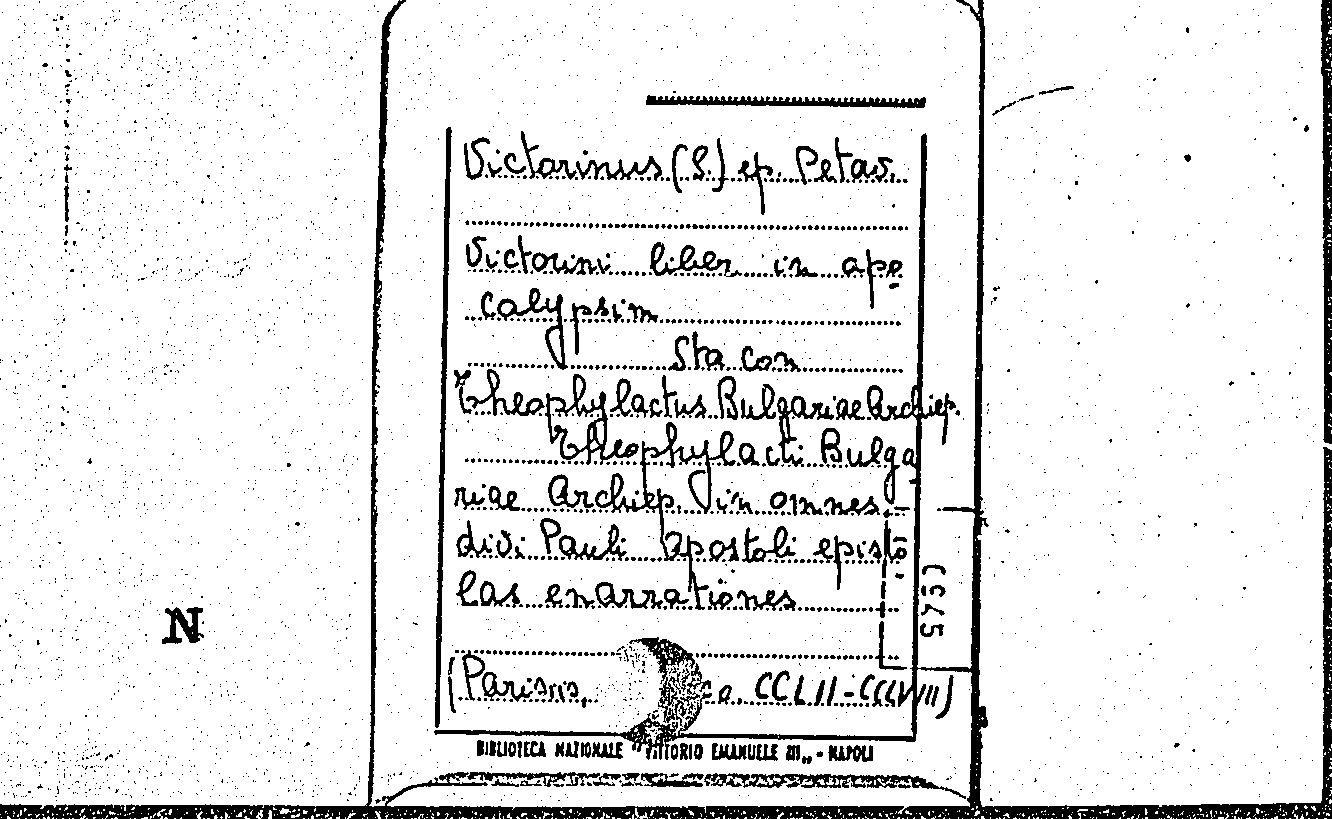 Victorinus (S.) ep. Petav.
Victorini liber in apo
calypsim
Sta con
Theophylactus Bulgariae Archiep.
Theophylacti Bulga
riae Archiep. in omnes
divi Pauli Apostoli episto
las enarrationes
5757)
N
(Parisiis, ca. CCLII-CCLVIII)
BIBLIOTECA NAZIONALE "VITTORIO EMANUELE III„ - NAPOLI